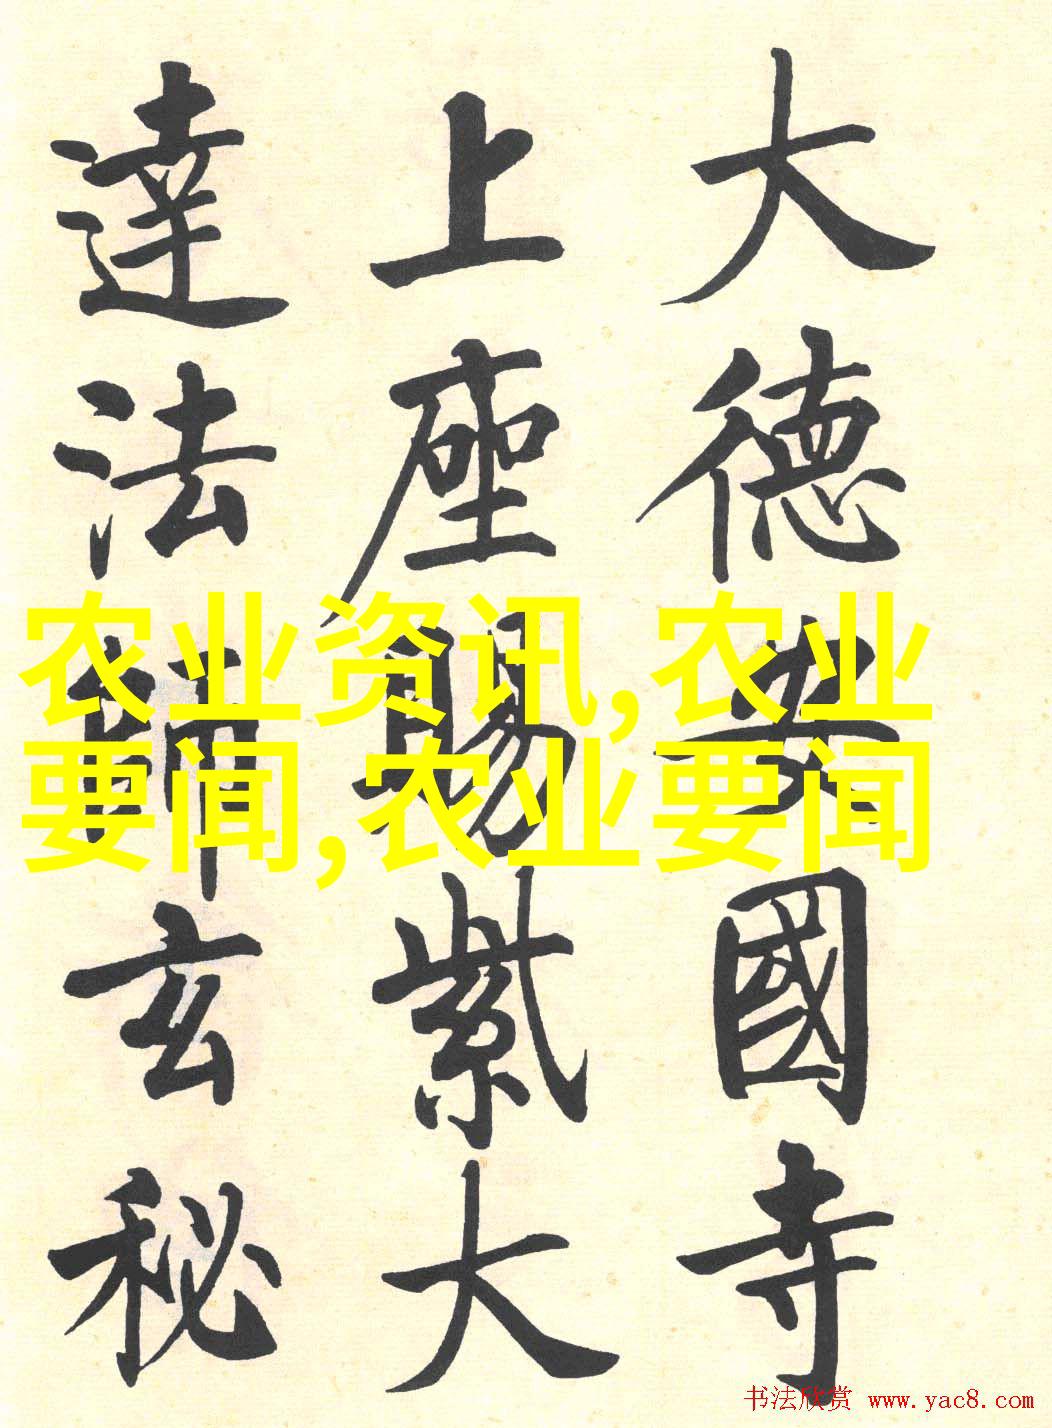 大德安國寺
上座賜紫大
達法師玄秘
农业资讯,农业
要闻,农业要闻
书法欣赏 www.yac8.com